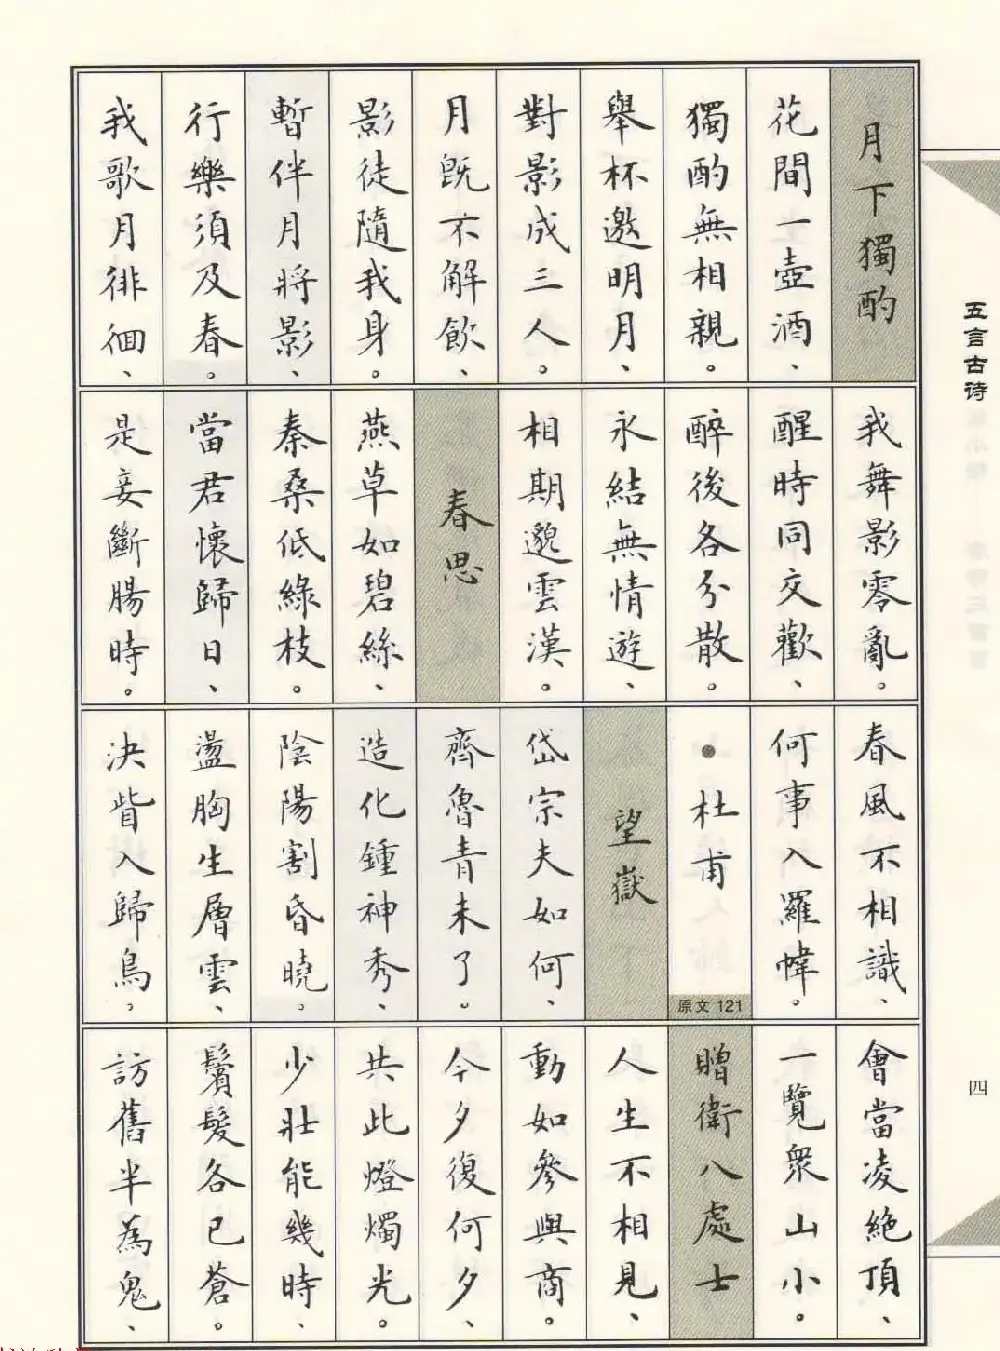 月下獨酌
花間一壺酒、
獨酌無相親。
舉杯邀明月、
對影成三人。
月既不解飲、
影徒隨我身。
暫伴月將影、
行樂須及春。
我歌月徘徊、
我舞影零亂。
醒時同交歡、
醉後各分散。
永結無情遊、
相期邈雲漢。
春思
燕草如碧絲、
秦桑低綠枝。
當君懷歸日、
是妾斷腸時。
春風不相識、
何事入羅幃。
●杜甫
原文 121
望嶽
岱宗夫如何、
齊魯青未了。
造化鍾神秀、
陰陽割昏曉。
盪胸生層雲、
決眥入歸鳥。
會當凌絕頂、
一覽眾山小。
贈衛八處士
人生不相見、
動如參與商。
今夕復何夕、
共此燈燭光。
少壯能幾時、
鬢髮各已蒼。
訪舊半為鬼、
五言古诗
四